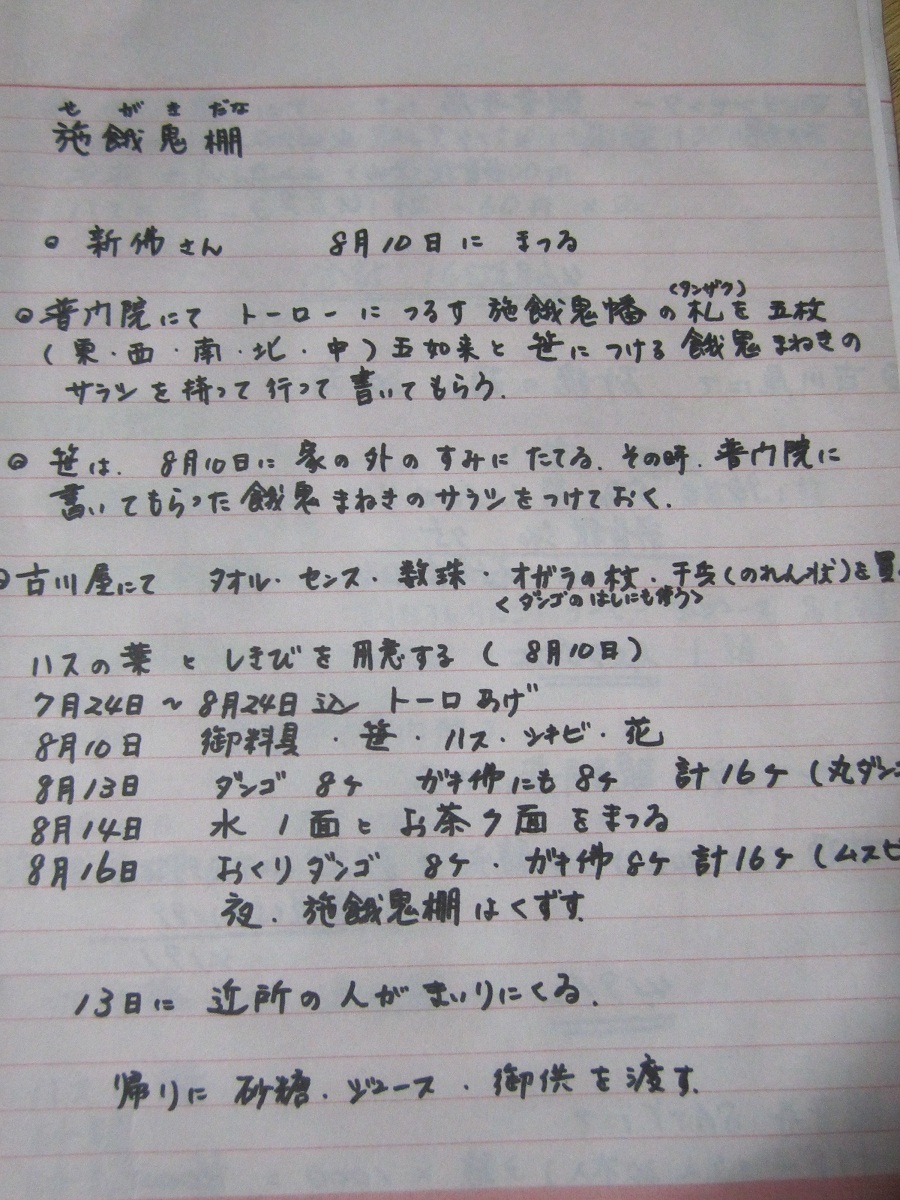 せがきだな
施餓鬼棚
○ 新佛さん 8月10日に まつる
○ 普門院にて トーローに つるす 施餓鬼幡の札を 五枚
(タンザク)
(東・西・南・北・中) 五如来と 笹につける 餓鬼まねきの
サラシを 持って行って 書いてもらう.
○ 笹は. 8月10日に 家の外の すみに たてる. その時. 普門院に
書いてもらった 餓鬼まねきのサラシを つけておく.
○古川屋にて タオル・センス・数珠・オガラの杖・干兵(のれん状)を買
<ダンゴの はしにも使う>
ハスの葉 と しきびを 用意する ( 8月10日)
7月24日 ~ 8月24日 込 トーロあげ
8月10日 御料具 ・笹・ハス・シキビ・花
8月13日 ダンゴ 8ケ ガキ佛にも 8ケ 計16ケ (丸ダン
8月14日 水 1面と お茶7面 をまつる
8月16日 おくりダンゴ 8ケ・ガキ佛8ケ 計16ケ (ムスビ
夜. 施餓鬼棚はくずす.
13日に 近所の人が まいりにくる.
帰りに 砂糖・ジュース・御供を渡す.